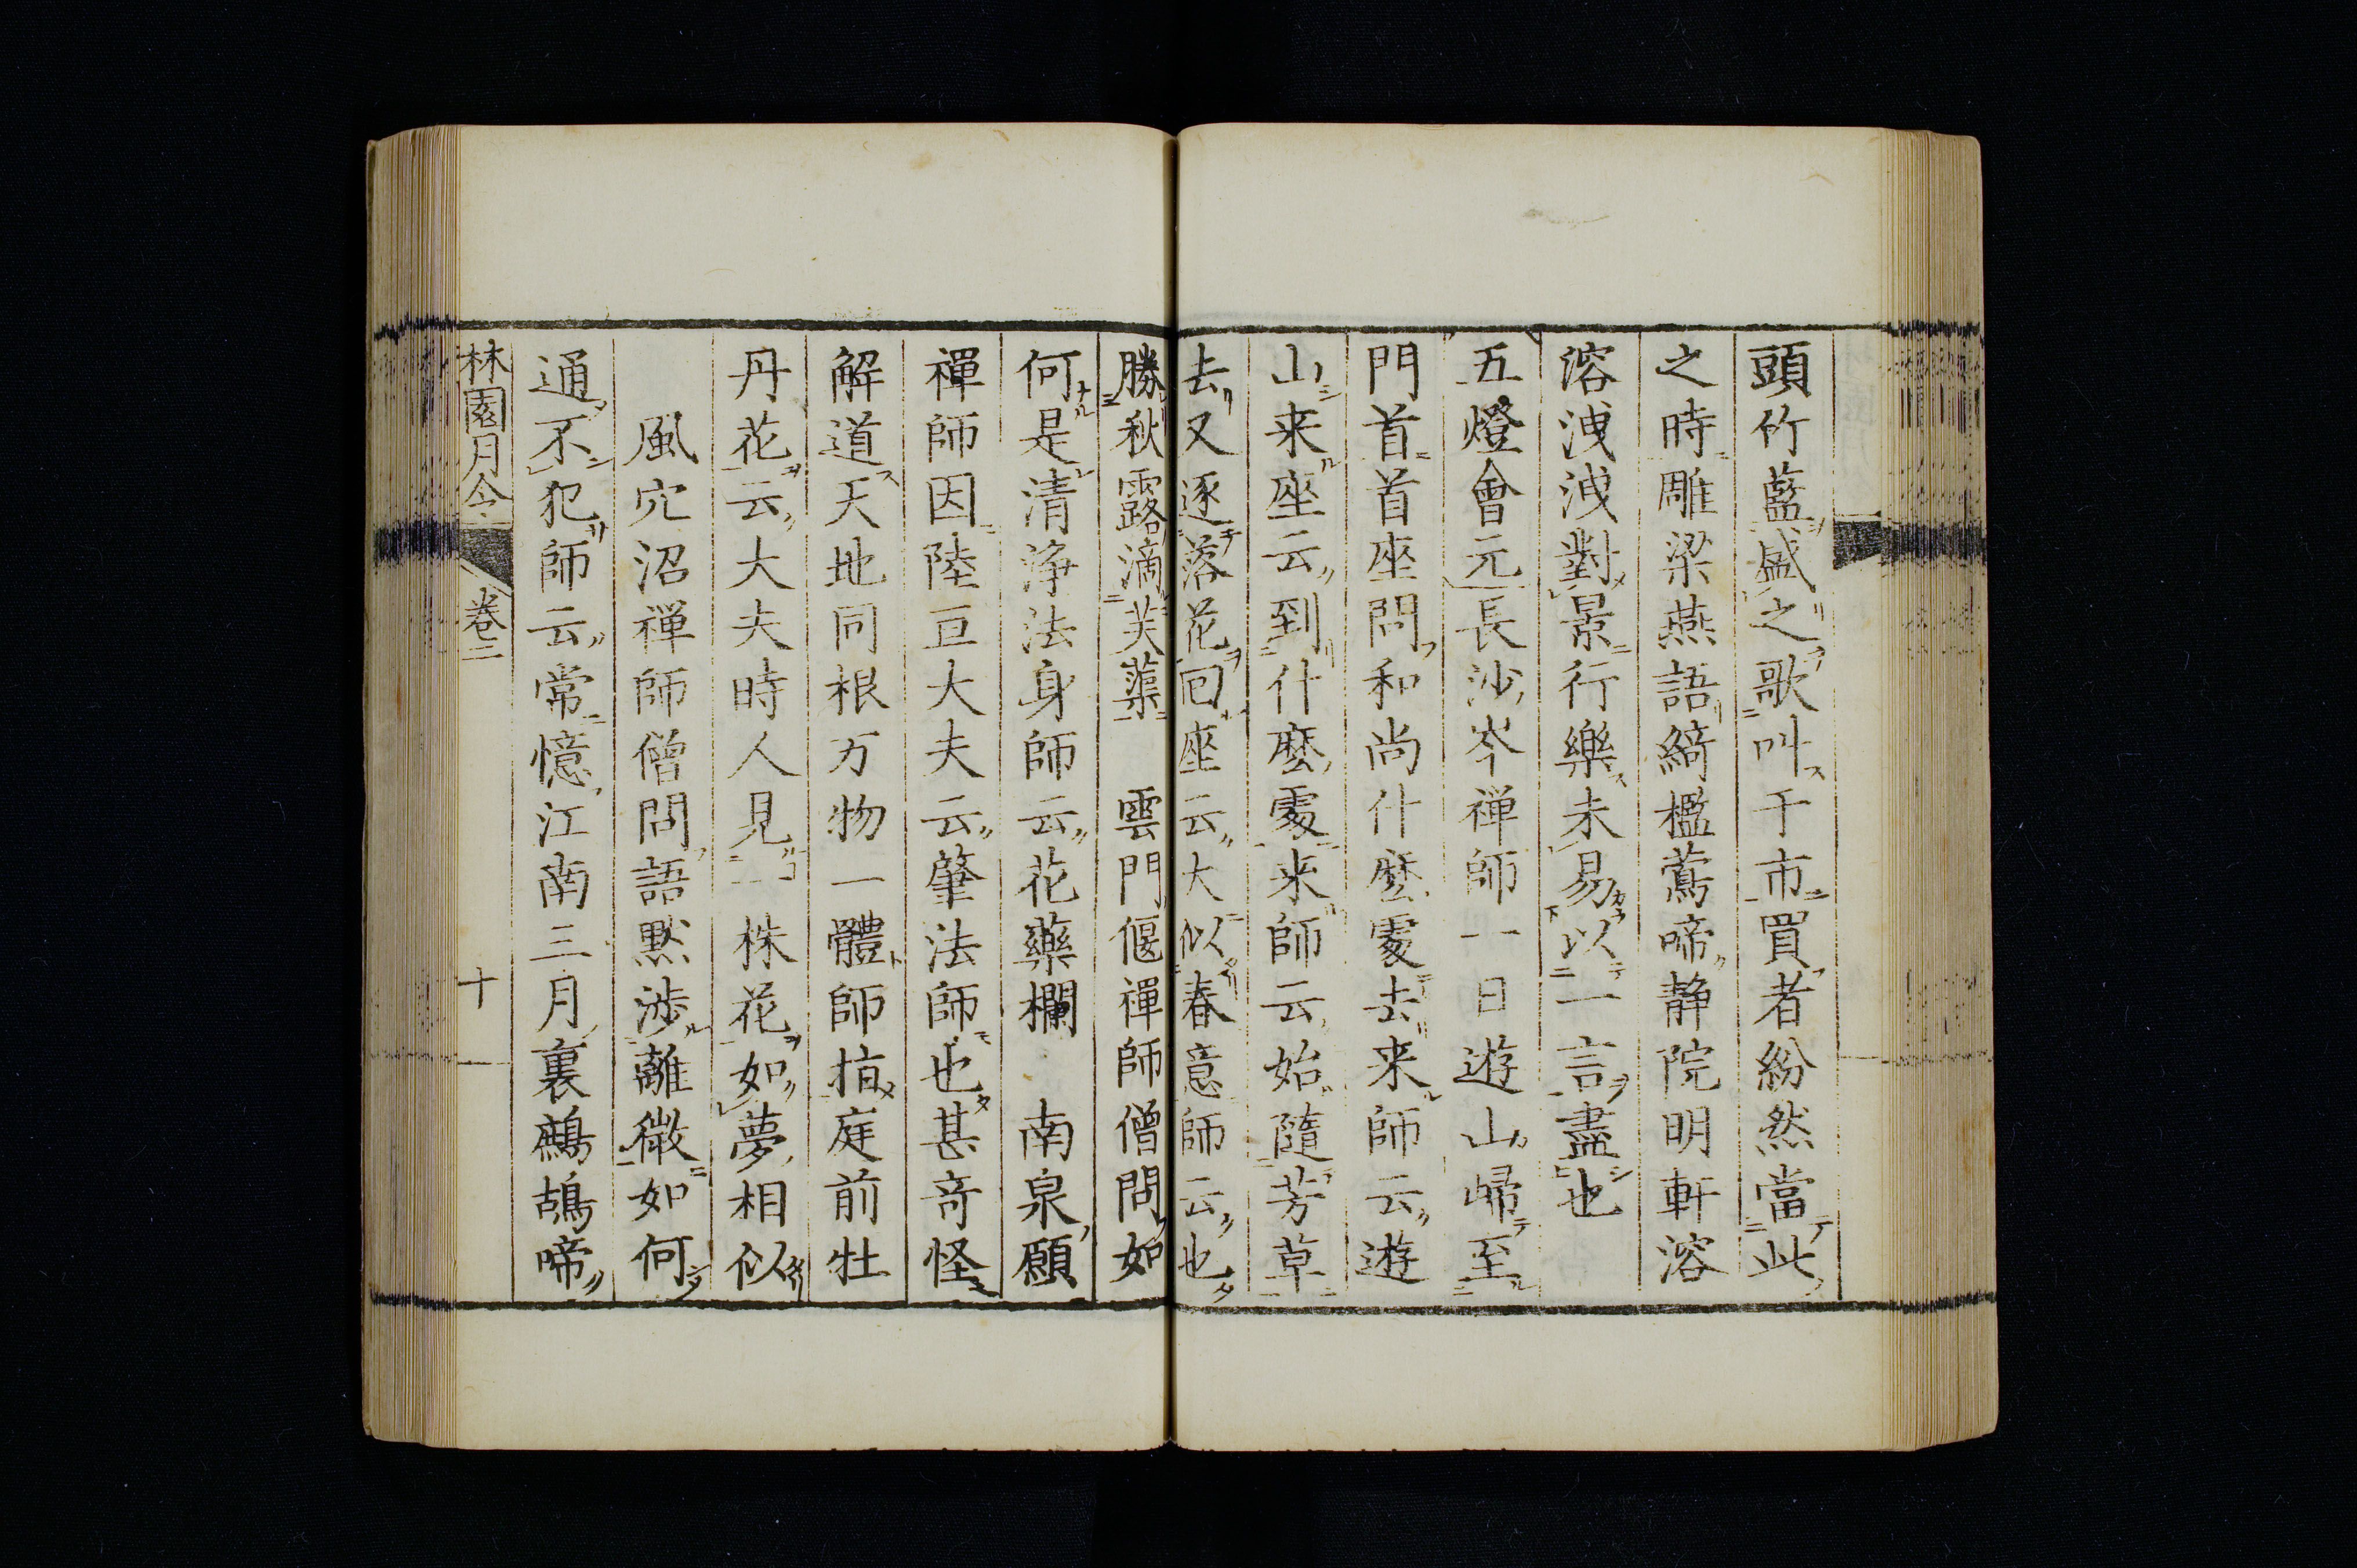 頭竹藍盛之歌叫于市買者紛然當此
之時雕梁燕語綺檻鶯啼靜院明軒溶
溶洩洩對景行樂未易以一言盡也
五燈會元長沙岑禅師一日遊山歸至
門首首座問和尚什麽處去来師云遊
山来座云到什麽處来師云始隨芳草
去又逐落花回座云大似春意師云也
勝秋露滴芙蕖　雲門偃禪師僧問如
何是清淨法身師云花藥欄　南泉願
禪師因陸亘大夫云肇法師也甚竒怪
解道天地同根万物一體師指庭前牡
丹花云大夫時人見一株花如夢相似
風穴沼禅師僧問語黙渉離微如何
通不犯師云常憶江南三月裏鷓鴣啼
林園月令　卷二　十